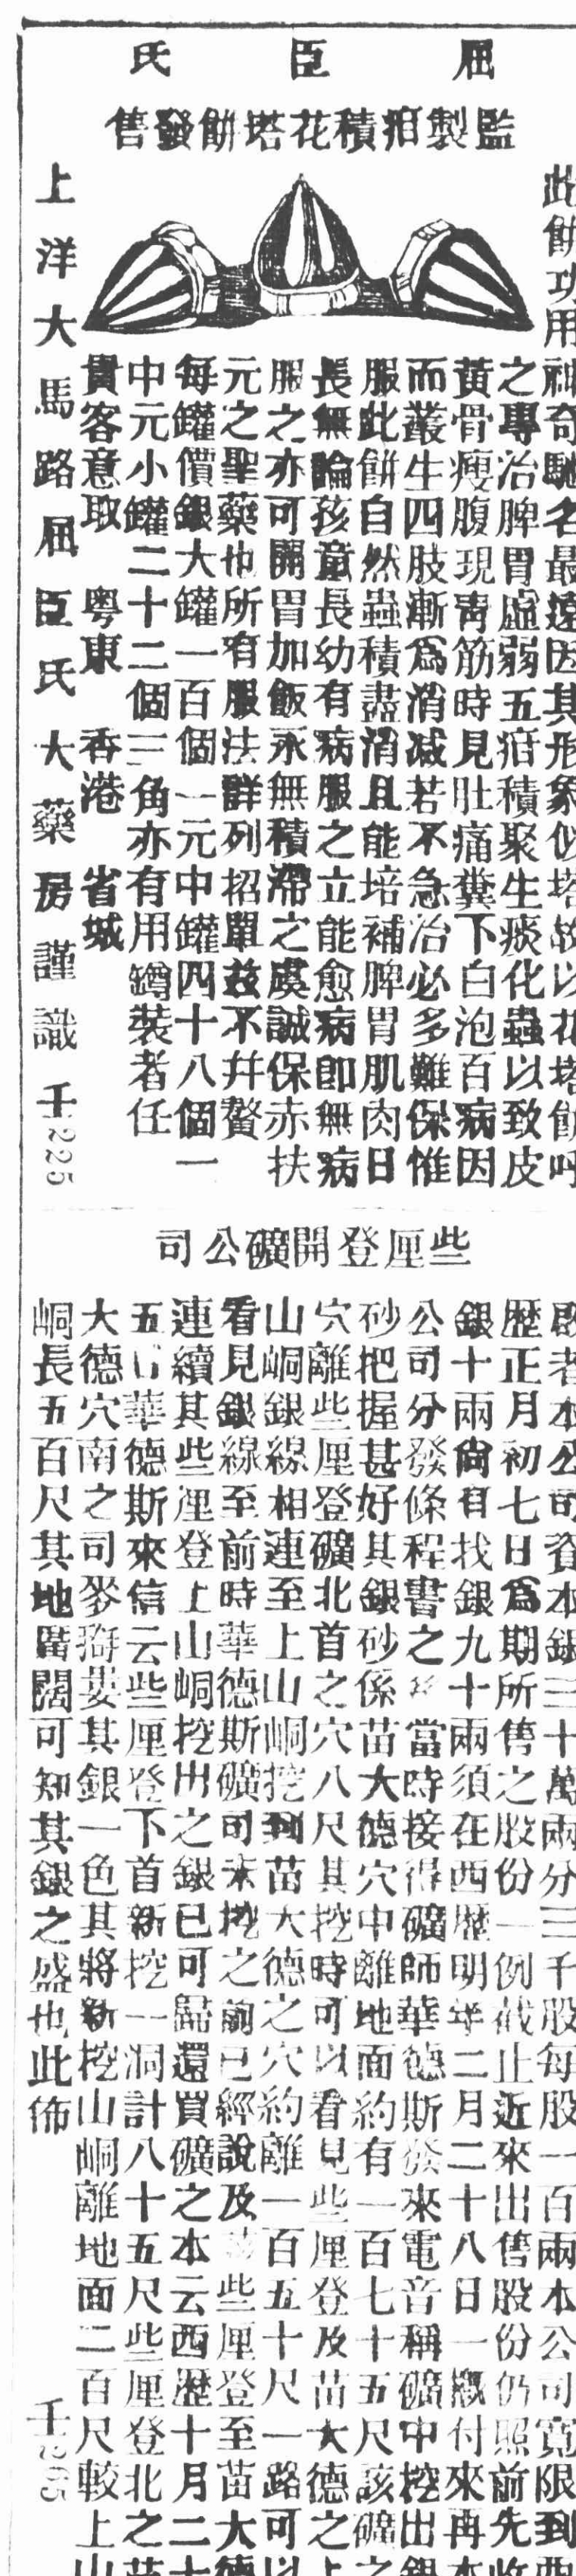 屈臣氏
監製疳積花塔餅發售
此餅功用神奇馳名最遠因其形象似塔故以花塔餅呼
之專治脾胃虛弱五疳積聚生痰化蟲以致皮
黃骨瘦腹現青筋時見肚痛糞下白泡百病因
而叢生四肢漸為消減若不急治必多難保惟
服此餅自然蟲積盡消且能培補脾胃肌肉日
長無論孩童長幼有病服之立能愈病即無病
服之亦可開胃加飯永無積滯之虞誠保赤扶
元之聖藥也所有服法詳列招單茲不幷贅
每罐價銀大罐一百個一元中罐四十八個一
中元小罐二十二個三角亦有用罇裝者任
貴客意取 粵東 香港 省城
上洋大馬路屈臣氏大藥房謹識 壬1225
些厘登開礦公司
啟者本公司資本銀三十萬兩分三千股每股一百兩本公司寬限到西
歷正月初七日為期所售之股份一例截止近來出售股份仍照前先收
銀十兩尚有找銀九十兩須在西歷明年二月二十八日一概付來再本
公司分發條程書之 當時接得礦師華德斯發來電音稱礦中挖出銀
砂把握甚好其銀砂係苗大德穴中離地面約有一百七十五尺該礦之
穴離些厘登礦北首之穴八尺其挖時可以看見些厘登及苗大德之上
山峒銀線相連至上山峒挖到苗大德之穴約離一百五十尺一路可以
看見銀線至前時華德斯礦司未挖之前已經說及 些厘登至苗大德
連續其些厘登上山峒挖出之銀已可歸還買礦之本云西歷十月二十
五日華德斯來信云些厘登下首新挖一洞計八十五尺些厘登北之苗
大德穴南之司麥 其銀一色其將新挖山峒離地面二百尺較上山
峒長五百尺其地廣闊可知其銀之盛也此佈 壬1265